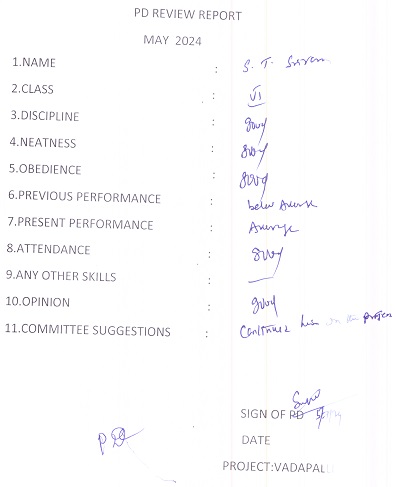 PD REVIEW REPORT
MAY 2024
1.NAME : S. T. Sriram
2.CLASS : VI
3.DISCIPLINE : good
4.NEATNESS : good
5.OBEDIENCE : good
6.PREVIOUS PERFORMANCE : below Average
7.PRESENT PERFORMANCE : Average
8.ATTENDANCE : good
9.ANY OTHER SKILLS : —
10.OPINION : good
11.COMMITTEE SUGGESTIONS : Continue him in the project
SIGN OF PD
PD
DATE
PROJECT:VADAPAL